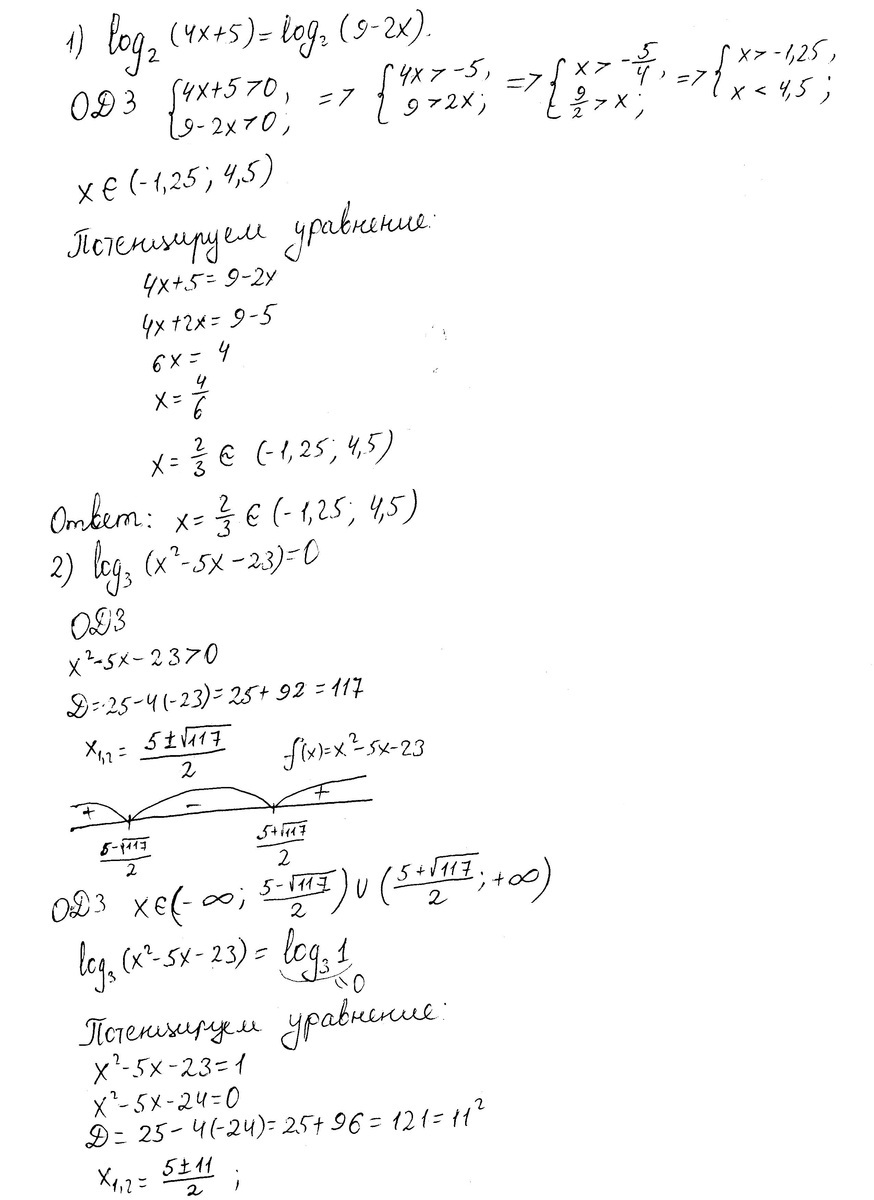 1) log₂ (4x+5) = log₂ (9-2x).
ОДЗ { 4x+5>0, 9-2x>0; => { 4x>-5, 9>2x; => { x>-5/4, 9/2>x; => { x>-1,25, x<4,5;
x ∈ (-1,25; 4,5)
Потенцируем уравнение:
4x+5=9-2x
4x+2x=9-5
6x=4
x=4/6
x=2/3 ∈ (-1,25; 4,5)
Ответ: x=2/3 ∈ (-1,25; 4,5)
2) log₃ (x²-5x-23)=0
ОДЗ
x²-5x-23>0
Д=25-4(-23)=25+92=117
x₁,₂=(5±√117)/2 f(x)=x²-5x-23
+ - +
(5-√117)/2 (5+√117)/2
ОДЗ x∈(-∞; (5-√117)/2) ∪ ((5+√117)/2; +∞)
log₃(x²-5x-23)=log₃1
=0
Потенцируем уравнение:
x²-5x-23=1
x²-5x-24=0
Д=25-4(-24)=25+96=121=11²
x₁,₂=(5±11)/2 ;